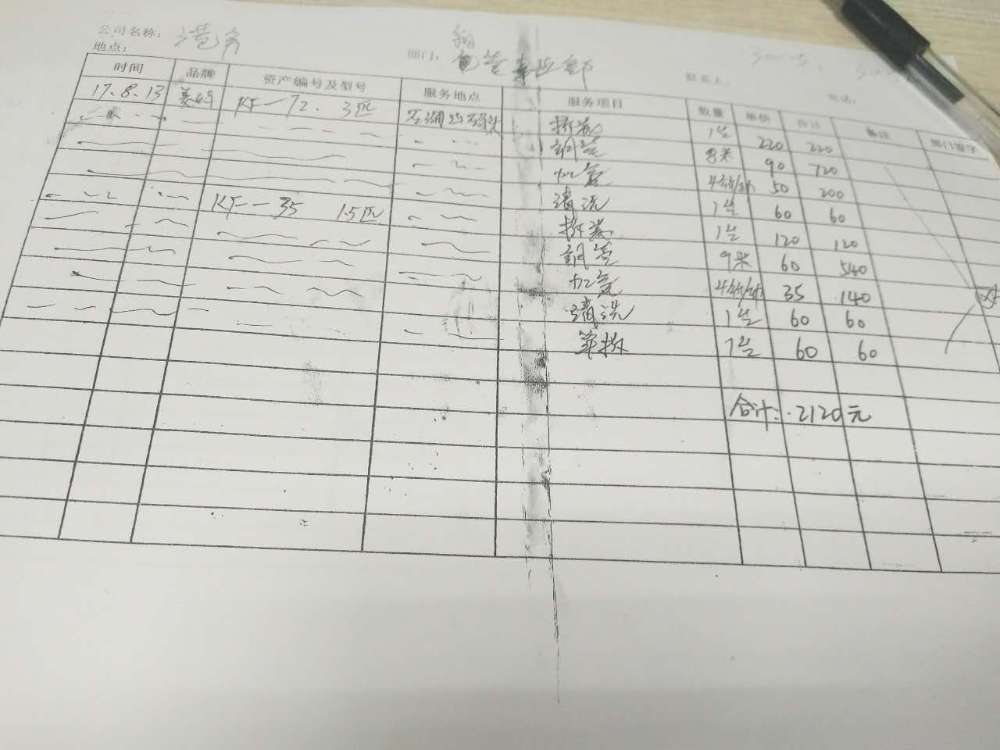 公司名称: 港务
地点: 部门: 联系人: 电话:
时间 品牌 资产编号及型号 服务地点 服务项目 数量 单价 合计 备注 部门签字
17.8.13 美的 KF-72. 3匹 拆装 1台 220 220
铜管 8米 90 720
加氟 4 50 200
清洗 1台 60 60
KF-35 1.5匹 拆装 1台 120 120
铜管 9米 60 540
加氟 4 35 140
清洗 1台 60 60
单拆 1台 60 60
合计: 2120元